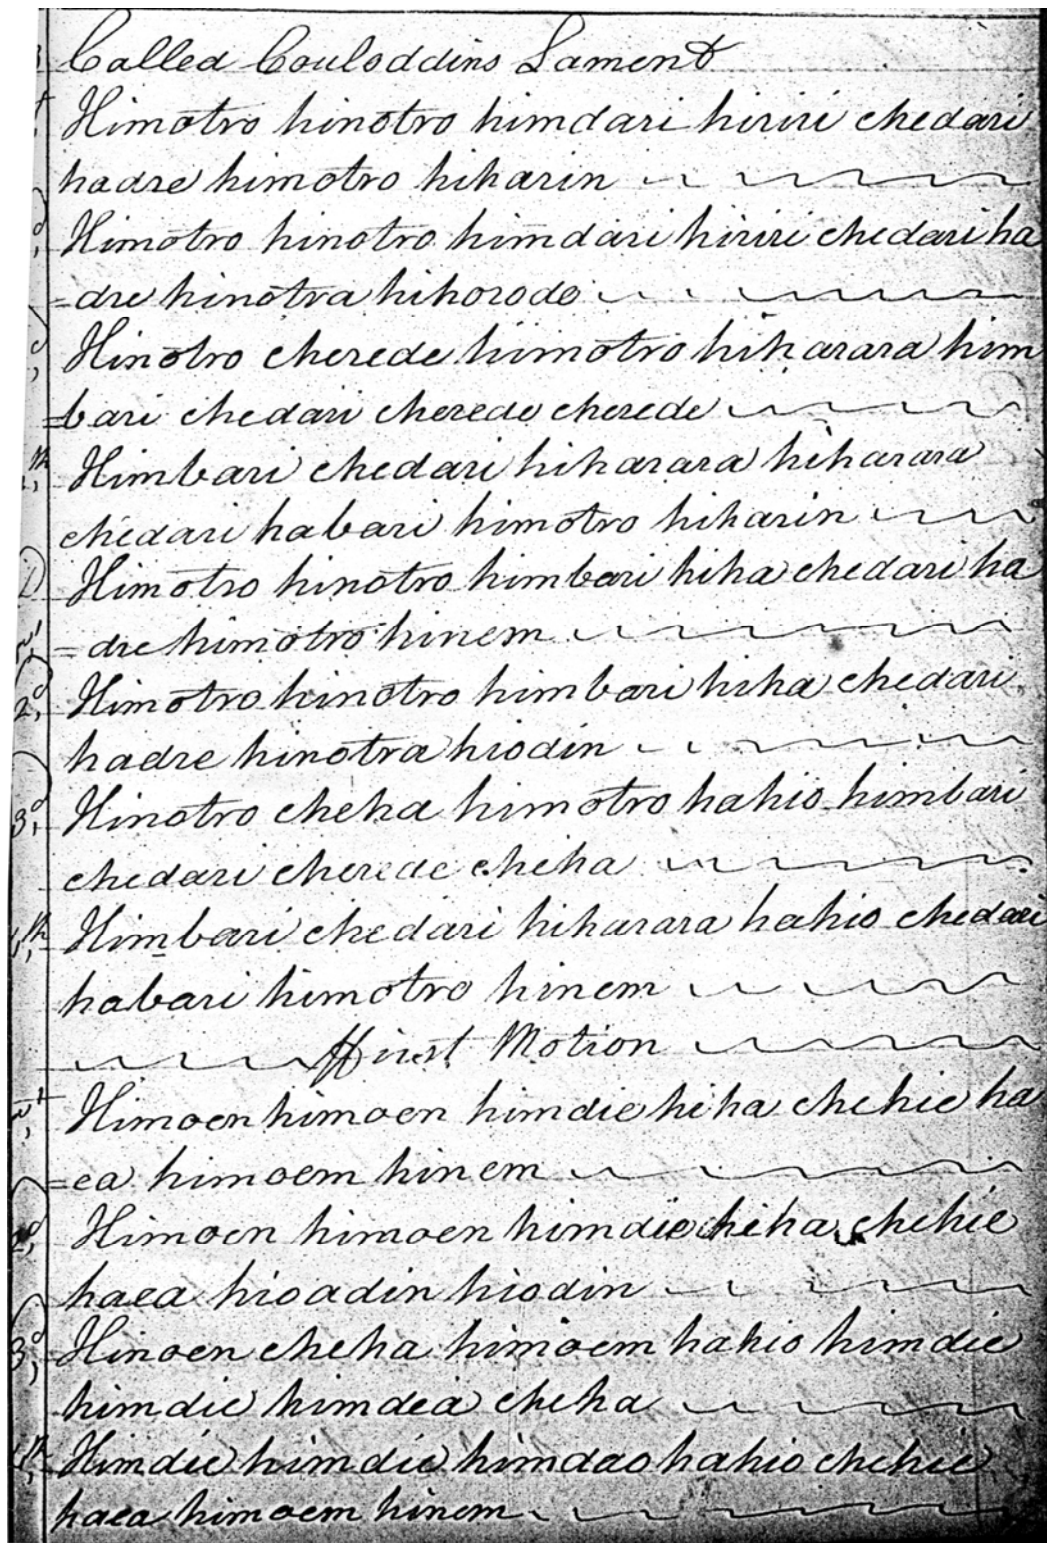 Called Couloddins Lament
Himotro hinotro himdari hiriri chedari
hadre himotro hiharin
Himotro hinotro himdari hiriri chedari ha
=dre hinotra hihorodo
Hinotro cherede himotro hiharara him
=bari chedari cherede cherede
Himbari chedari hiharara hiharara
chedari habari himotro hiharin
Himotro hinotro himbari hiha chedari ha
=dre himotro hinem
2d Himotro hinotro himbari hiha chedari
hadre hinotra hiodin
3d Hinotro cheha himotro hahio himbari
chedari cherede cheha
Himbari chedari hiharara hahio chedari
habari himotro hinem
ffirst Motion
Himoen himoen himdie hiha chehie ha
=ea himoem hinem
2d Himoen himoen himdie hiha chehie
haea hioadin hiodin
3d Hinoen cheha himoem hahio himdie
himdie himdea cheha
Himdie himdie himdao hahio chehie
haea himoem hinem